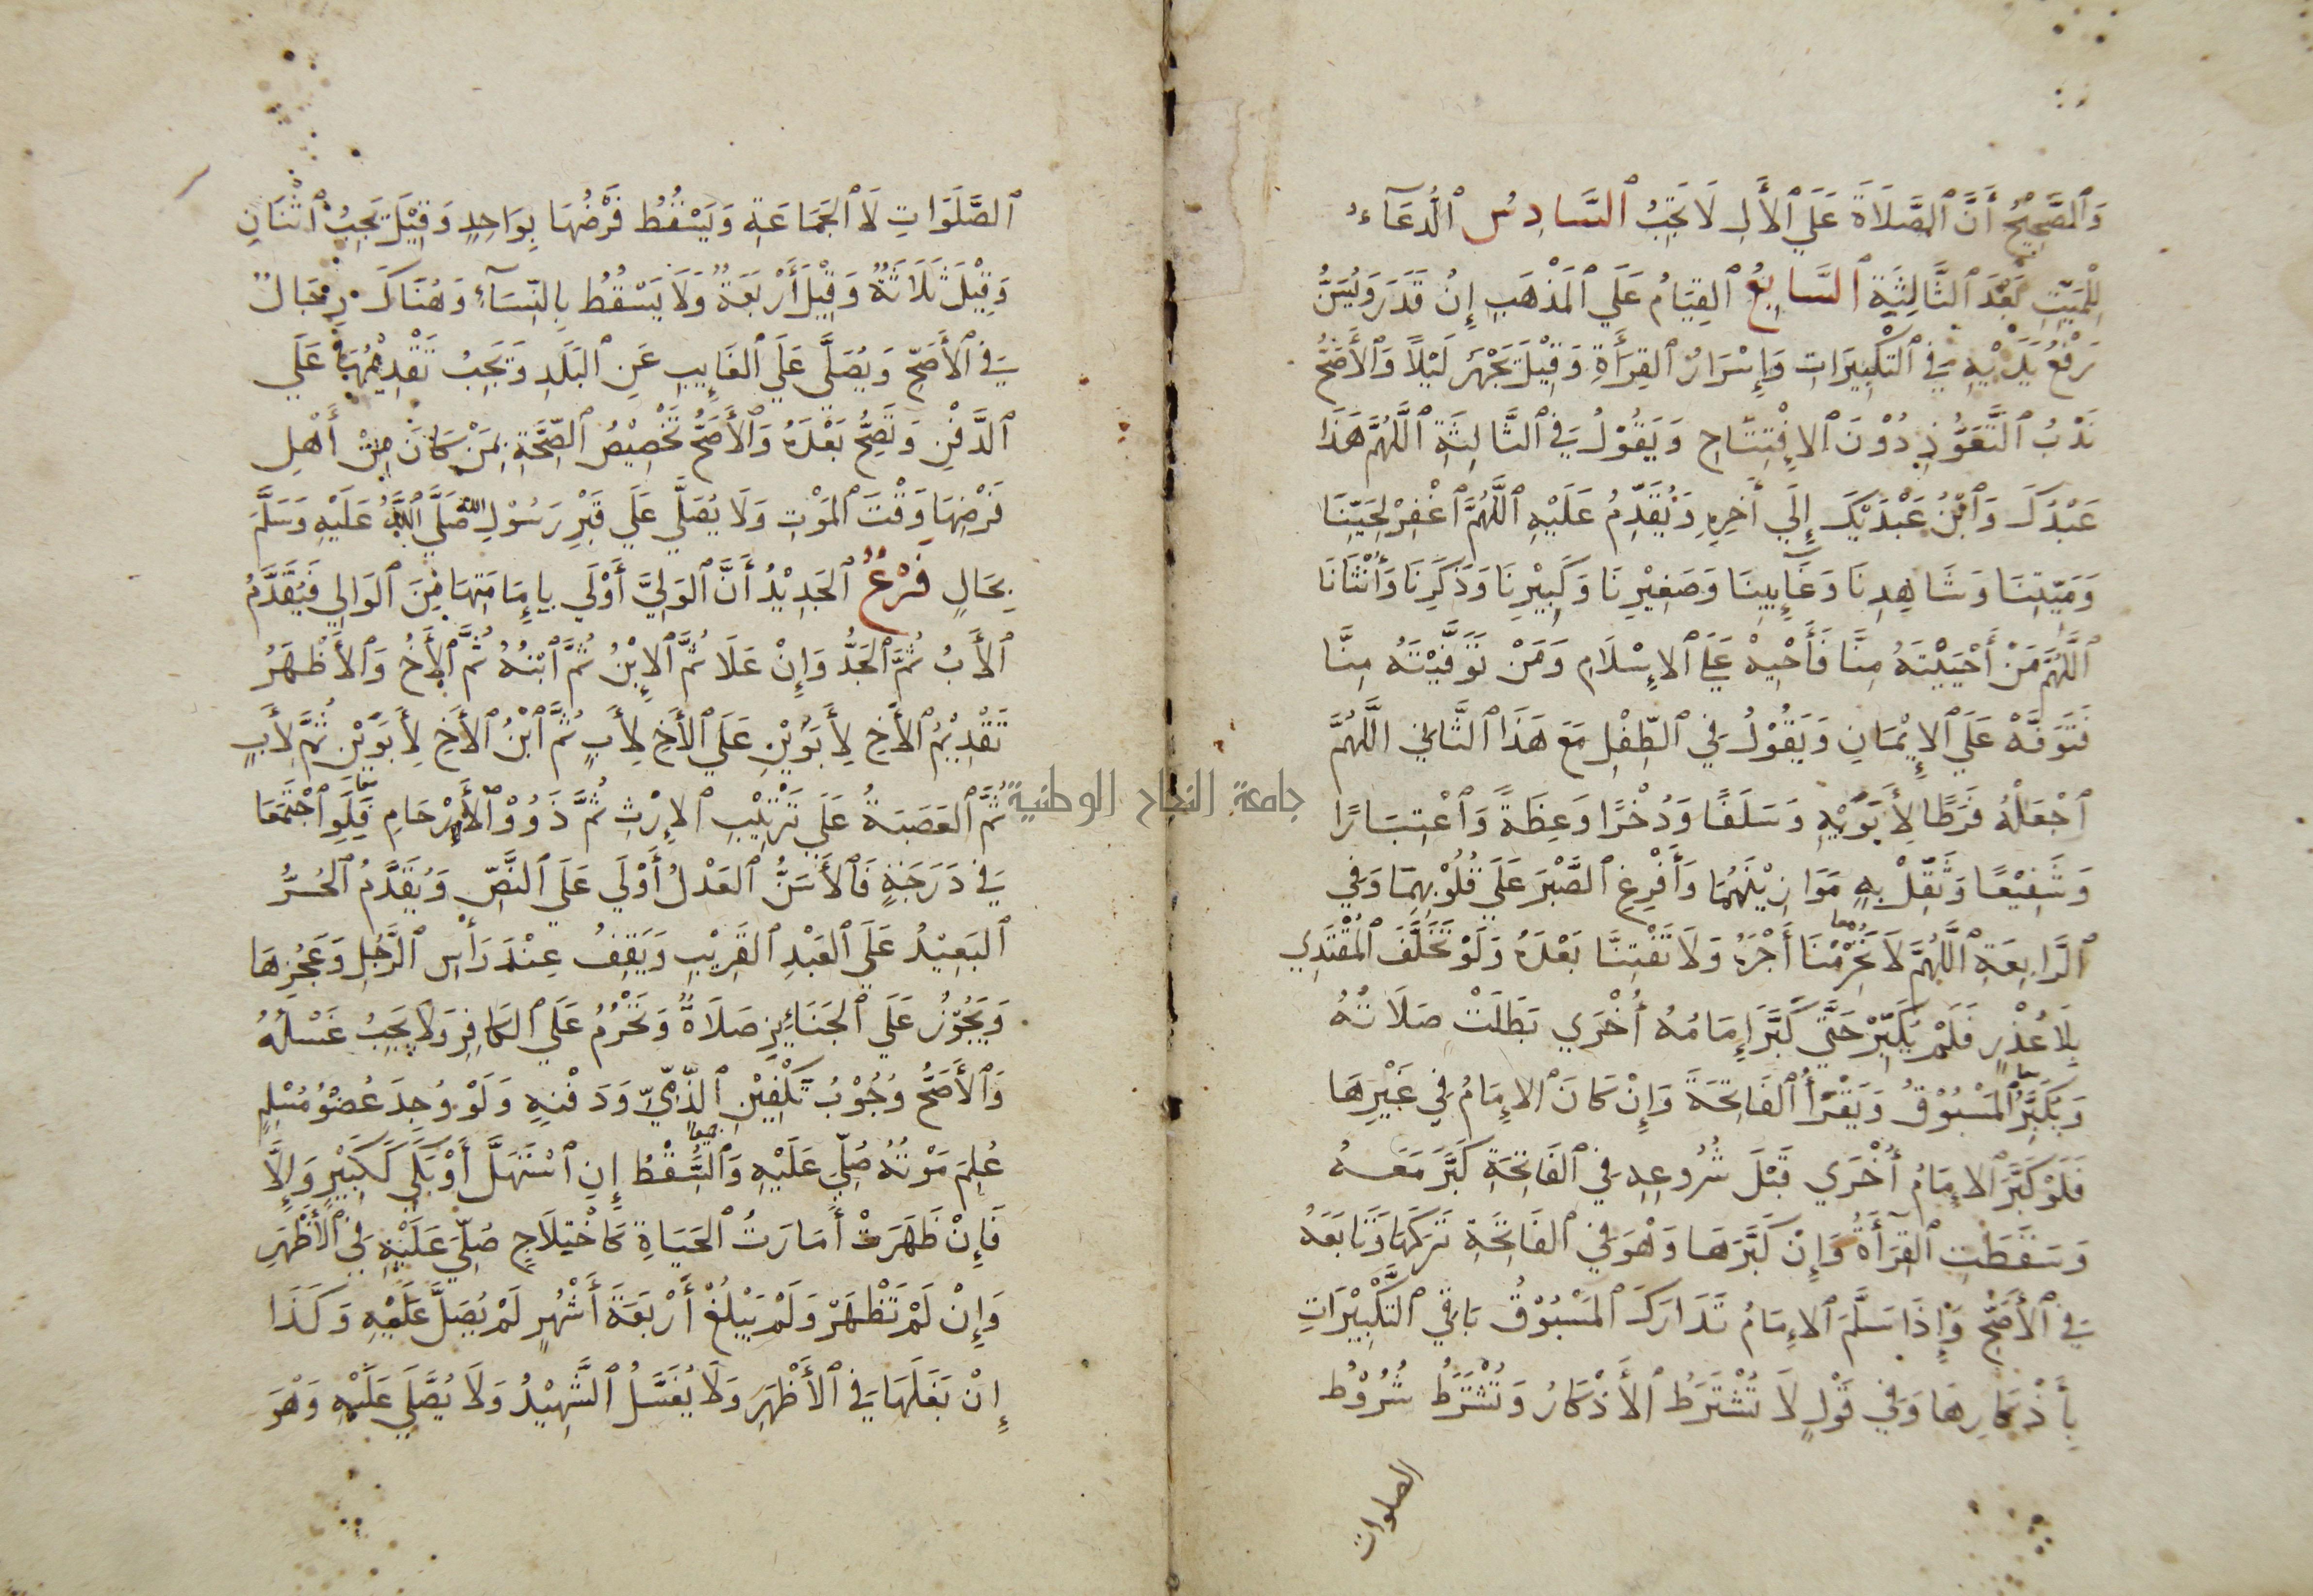 وَٱلصَّحِيْحُ أَنَّ ٱلصَّلَاةَ عَلَي ٱلأَلِ لَا تَجِبُ ٱلسَّادِسُ ٱلدُّعَآءُ
لِلْمَيِّتِ بَعْدَ ٱلثَّالِثَةِ ٱلسَّابِعُ ٱلقِيَامُ عَلَي ٱلمَذْهَبِ إِنْ قَدَرَ وَيُسَنُّ
رَفْعُ يَدَيْهِ فِي ٱلتَّكْبِيرَاتِ وَإِسْرَارُ ٱلقِرَأَةِ وَقِيْلَ يَجْهَرُ لَيْلًا وَٱلأَصَحُّ
نَدْبُ ٱلتَّعَوُّذِ دُوْنَ ٱلإِفْتِتَاحِ وَيَقُوْلُ فِي ٱلثَّالِثَةِ ٱللَّهُمَّ هَذَا
عَبْدُكَ وَٱبْنُ عَبْدَيْكَ إِلَي أَخِرِهِ وَيُقَدِّمُ عَلَيْهِ ٱللَّهُمَّ ٱغْفِرْ لِحَيِّنَا
وَمَيِّتِنَا وَشَاهِدِنَا وَغَآيِبِنَا وَصَغِيْرِنَا وَكَبِيْرِنَا وَذَكَرِنَا وَأُنْثَانَا
ٱللَّهُمَّ مَنْ أَحْيَيْتَهُ مِنَّا فَأَحْيِهْ عَلَي ٱلإِسْلَامِ وَمَنْ تَوَفَّيْتَهُ مِنَّا
فَتَوَفَّهْ عَلَي ٱلإِيْمَانِ وَيَقُوْلُ فِي ٱلطِّفْلِ مَعَ هَذَا ٱلثَّانِي اللَّهُمَّ
ٱجْعَلْهُ فَرَطًا لِأَبَوَيْهِ وَسَلَفًا وَذُخْرًا وَعِظَةً وَٱعْتِبَارًا
وَشَفِيْعًا وَثَقِّلْ بِهِ مَوَازِيْنَهُمَا وَأَفْرِغِ ٱلصَّبْرَ عَلَي قُلُوْبِهِمَا وَفِي
ٱلرَّابِعَةِ ٱللَّهُمَّ لَا تَحْرِمْنَا معا أَجْرَهُ وَلَا تَفْتِنَّا بَعْدَهُ وَلَوْ تَخَلَّفَ ٱلمُقْتَدِي
بِلَا عُذْرٍ فَلَمْ يُكَبِّرْ حَتَّي كَبَّرَ إِمَامُهُ أُخْرَي بَطَلَتْ صَلَاتُهُ
وَيُكَبِّرُ ٱلمَسْبُوْقُ وَيَقْرَأُ ٱلفَاتِحَةَ وَإِنْ كَانَ ٱلإِمَامُ فِي غَيْرِهَا
فَلَوْ كَبَّرَ ٱلإِمَامُ أُخْرَي قَبْلَ شُرُوعِهِ فِي ٱلفَاتِحَةِ كَبَّرَ مَعَهُ
وَسَقَطَتِ ٱلقِرَأَةُ وَإِنْ كَبَّرَهَا وَهْوَ فِي ٱلفَاتِحَةِ تَرَكَهَا وَتَابَعَهُ
فِي ٱلأَصَحِّ وَإِذَا سَلَّمَ ٱلإِمَامُ تَدَارَكَ ٱلمَسْبُوْقُ بَاقِي ٱلتَّكْبِيْرَاتِ
بِأَذْكَارِهَا وَفِي قَوْلٍ لَا تُشْتَرَطُ ٱلأَذْكَارُ وَتُشْتَرَطُ شُرُوْطُ
الصلوات
ٱلصَّلَوَاتِ لَا ٱلجَمَاعَةِ وَيَسْقُطُ فَرْضُهَا بِوَاحِدٍ وَقِيْلَ يَجِبُ ٱثْنَانِ
وَقِيْلَ ثَلَاثَةٌ وَقِيْلَ أَرْبَعَةٌ وَلَا يَسْقُطُ بِالنِّسَآءِ وَهُنَاكَ رِجَالٌ
فِي ٱلأَصَحِّ وَيُصَلَّى عَلَي ٱلغَايِبِ عَنِ ٱلبَلَدِ وَيَجِبُ تَقْدِيْمُهَا عَلَي
ٱلدَّفْنِ وَتَصِحُّ بَعْدَهُ وَٱلأَصَحُّ تَخْصِيْصُ ٱلصِّحَّةِ بِمَنْ كَانَ مِنْ أَهْلِ
فَرْضِهَا وَقْتَ ٱلمَوْتِ وَلَا يُصَلَّي عَلَي قَبْرِ رَسُوْلِ الله صَلَّي ٱللَّهُ عَلَيْهِ وَسَلَّمَ
بِحَالٍ فَرْعٌ ٱلجَدِيْدُ أَنَّ ٱلوَلِيَّ أَوْلَي بِإِمَامَتِهَا مِنَ ٱلوَالِي فَيُقَدَّمُ
ٱلأَبُ ثُمَّ ٱلجَدُّ وَإِنْ عَلَا ثُمَّ ٱلإِبْنُ ثُمَّ ٱبْنُهُ ثُمَّ ٱلأَخُ وَٱلأَظْهَرُ
تَقْدِيْمُ ٱلأَخِ لِأَبَوَيْنِ عَلَي ٱلأَخِ لِأَبٍ ثُمَّ ٱبْنُ ٱلأَخِ لِأَبَوَيْنِ ثُمَّ لِأَبٍ
ثُمَّ ٱلعَصَبَةُ عَلَي تَرْتِيْبِ ٱلإِرْثِ ثُمَّ ذَوُوْ ٱلأَرْحَامِ فَلَوِ ٱجْتَمَعَا
فِي دَرَجَةٍ فَٱلأَسَنُّ ٱلعَدْلُ أَوْلَي عَلَي ٱلنَّصِّ وَيُقَدَّمُ ٱلحُرُّ
ٱلبَعِيْدُ عَلَي ٱلعَبْدِ ٱلقَرِيْبِ وَيَقِفُ عِنْدَ رَأْسِ ٱلرَّجُلِ وَعَجُزِهَا
وَيَجُوْزُ عَلَي ٱلجَنَائِزِ صَلَاةٌ وَتَحْرُمُ عَلَي ٱلكَافِرِ وَلَا يَجِبُ غَسْلُهُ
وَٱلأَصَحُّ وُجُوْبُ تَكْفِيْنِ ٱلذِّمِّيِّ وَدَفْنِهِ وَلَوْ وُجِدَ عُضْوُ مُسْلِمٍ
عُلِمَ مَوْتُهُ صُلِّيَ عَلَيْهِ وَٱلسُِّقْطُ إِنِ ٱسْتَهَلَّ أَوْ بَكَي كَكَبِيْرٍ وَإِلَّا
فَإِنْ ظَهَرَتْ أَمَارَتُ ٱلحَيَاةِ كَاخْتِلَاجٍ صُلِّيَ عَلَيْهِ فِي ٱلأَظْهَرِ
وَإِنْ لَمْ تَظْهَرْ وَلَمْ يَبْلُغْ أَرْبَعَةَ أَشْهُرٍ لَمْ يُصَلَّ عَلَيْهِ وَكَذَا
إِنْ بَلَغَهَا فِي ٱلأَظْهَرِ وَلَا يُغَسَّلُ ٱلشَّهِيْدُ وَلَا يُصَلَّي عَلَيْهِ وَهْوَ
جامعة النجاح الوطنية